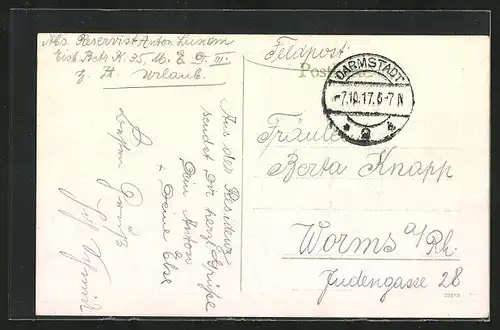 Abs. Reservist Anton Luxem
Eisb. Betr. K. 35, M. E. D. III.
z. Zt. Urlaub.
Feldpost.
Postkarte
DARMSTADT
-7.10.17.6-7N
* 2 *
Fräulein
Berta Knapp
Worms a/Rh.
Judengasse 28
Aus der Residenz
sendet Dir herzl. Grüße
Dein Anton
+ Deine Else
Besten Gruß